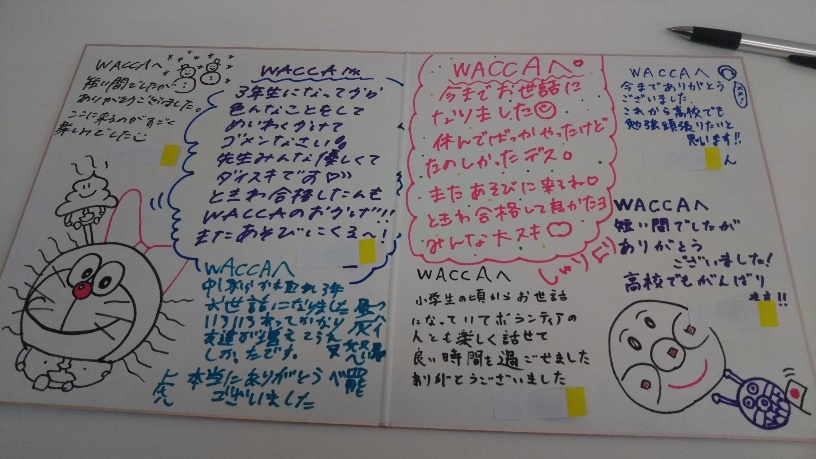 WACCAへ
短い間でしたが
ありがとうございました。
ここに来るのがすごく
楽しみでした
WACCAへ
3年生になってから
色んなことをして
めいわくかけて
ゴメンなさい
先生みんな優しくて
ダイスキです
ときわ合格したんも
WACCAのおかげ!!
またあそびにくる〜!
WACCAへ
お世話になりました
友達が増えて
本当にありがとう
ございました
WACCAへ。
今までお世話に
なりました
休んでばっかやったけど
たのしかったデス。
またあそびに来るね♡
ときわ合格して良かったヨ
みんな大スキ♡
WACCAへ
小学生の頃からお世話
になっていてボランティアの
人とも楽しく話せて
良い時間を過ごせました
ありがとうございました
WACCAへ
今までありがとう
ございました
これから高校でも
勉強頑張りたいと
思います!!
ん
WACCAへ
短い間でしたが
ありがとう
ございました!
高校でもがんばり
ます!!